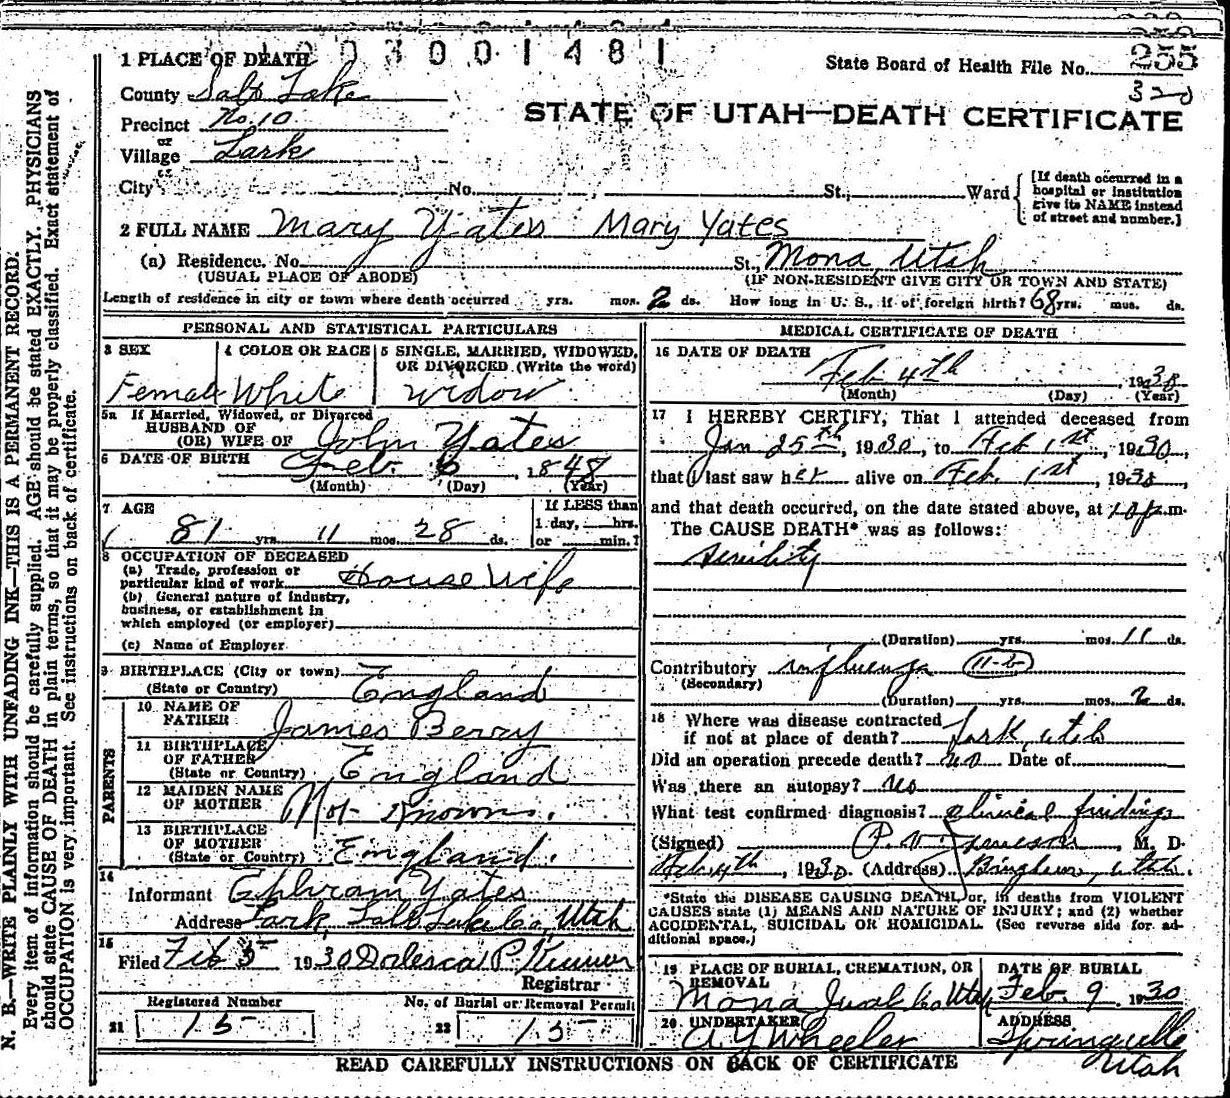 3001481
255
State Board of Health File No.
320
1 PLACE OF DEATH
County Salt Lake
STATE OF UTAH—DEATH CERTIFICATE
Precinct No. 10
or
Village Lark
or
City No. St., Ward
[If death occurred in a hospital or institution give its NAME instead of street and number.]
2 FULL NAME Mary Yates Mary Yates
(a) Residence. No. St., Mona, Utah
(USUAL PLACE OF ABODE) (IF NON-RESIDENT GIVE CITY OR TOWN AND STATE)
Length of residence in city or town where death occurred yrs. mos. 2 ds. How long in U. S., if of foreign birth? 68 yrs. mos. ds.
PERSONAL AND STATISTICAL PARTICULARS
3 SEX 4 COLOR OR RACE 5 SINGLE, MARRIED, WIDOWED, OR DIVORCED (Write the word)
Female White Widow
5a If Married, Widowed, or Divorced
HUSBAND OF
(OR) WIFE OF John Yates
6 DATE OF BIRTH Feb. 6, 1848
(Month) (Day) (Year)
7 AGE If LESS than
81 yrs. 11 mos. 28 ds. 1 day, hrs.
or min.?
8 OCCUPATION OF DECEASED
(a) Trade, profession or
particular kind of work House Wife
(b) General nature of industry,
business, or establishment in
which employed (or employer)
(c) Name of Employer
9 BIRTHPLACE (City or town)
(State or Country) England
PARENTS
10 NAME OF
FATHER James Berry
11 BIRTHPLACE
OF FATHER
(State or Country) England
12 MAIDEN NAME
OF MOTHER Not Known.
13 BIRTHPLACE
OF MOTHER
(State or Country) England.
14
Informant Ephram Yates
Address Lark, Salt Lake Co, Utah
15
Filed Feb 5 1930 P.
Registrar
Registered Number No. of Burial or Removal Permit
21 15 22 15
MEDICAL CERTIFICATE OF DEATH
16 DATE OF DEATH
Feb 4th, 1930
(Month) (Day) (Year)
17 I HEREBY CERTIFY, That I attended deceased from
Jan 25th, 1930, to Feb 1st, 1930,
that I last saw her alive on Feb. 1st, 1930,
and that death occurred, on the date stated above, at 10 p.m.
The CAUSE DEATH* was as follows:
Senility
(Duration) yrs. mos. 11 ds.
Contributory influenza 11-b
(Secondary)
(Duration) yrs. mos. 2 ds.
18 Where was disease contracted
if not at place of death? Lark, Utah
Did an operation precede death? no Date of
Was there an autopsy? No
What test confirmed diagnosis? clinical findings
(Signed) P. , M. D.
Feb 4th, 1930 (Address) Bingham, Utah.
*State the DISEASE CAUSING DEATH, or, in deaths from VIOLENT
CAUSES state (1) MEANS AND NATURE OF INJURY; and (2) whether
ACCIDENTAL, SUICIDAL OR HOMICIDAL. (See reverse side for ad-
ditional space.)
19 PLACE OF BURIAL, CREMATION, OR REMOVAL DATE OF BURIAL
Mona Juab Co Utah Feb. 9 1930
20 UNDERTAKER ADDRESS
A Y Wheeler Springville
Utah
READ CAREFULLY INSTRUCTIONS ON BACK OF CERTIFICATE
N. B.—WRITE PLAINLY WITH UNFADING INK—THIS IS A PERMANENT RECORD.
Every item of information should be carefully supplied. AGE should be stated EXACTLY. PHYSICIANS
should state CAUSE OF DEATH in plain terms, so that it may be properly classified. Exact statement of
OCCUPATION is very important. See instructions on back of certificate.